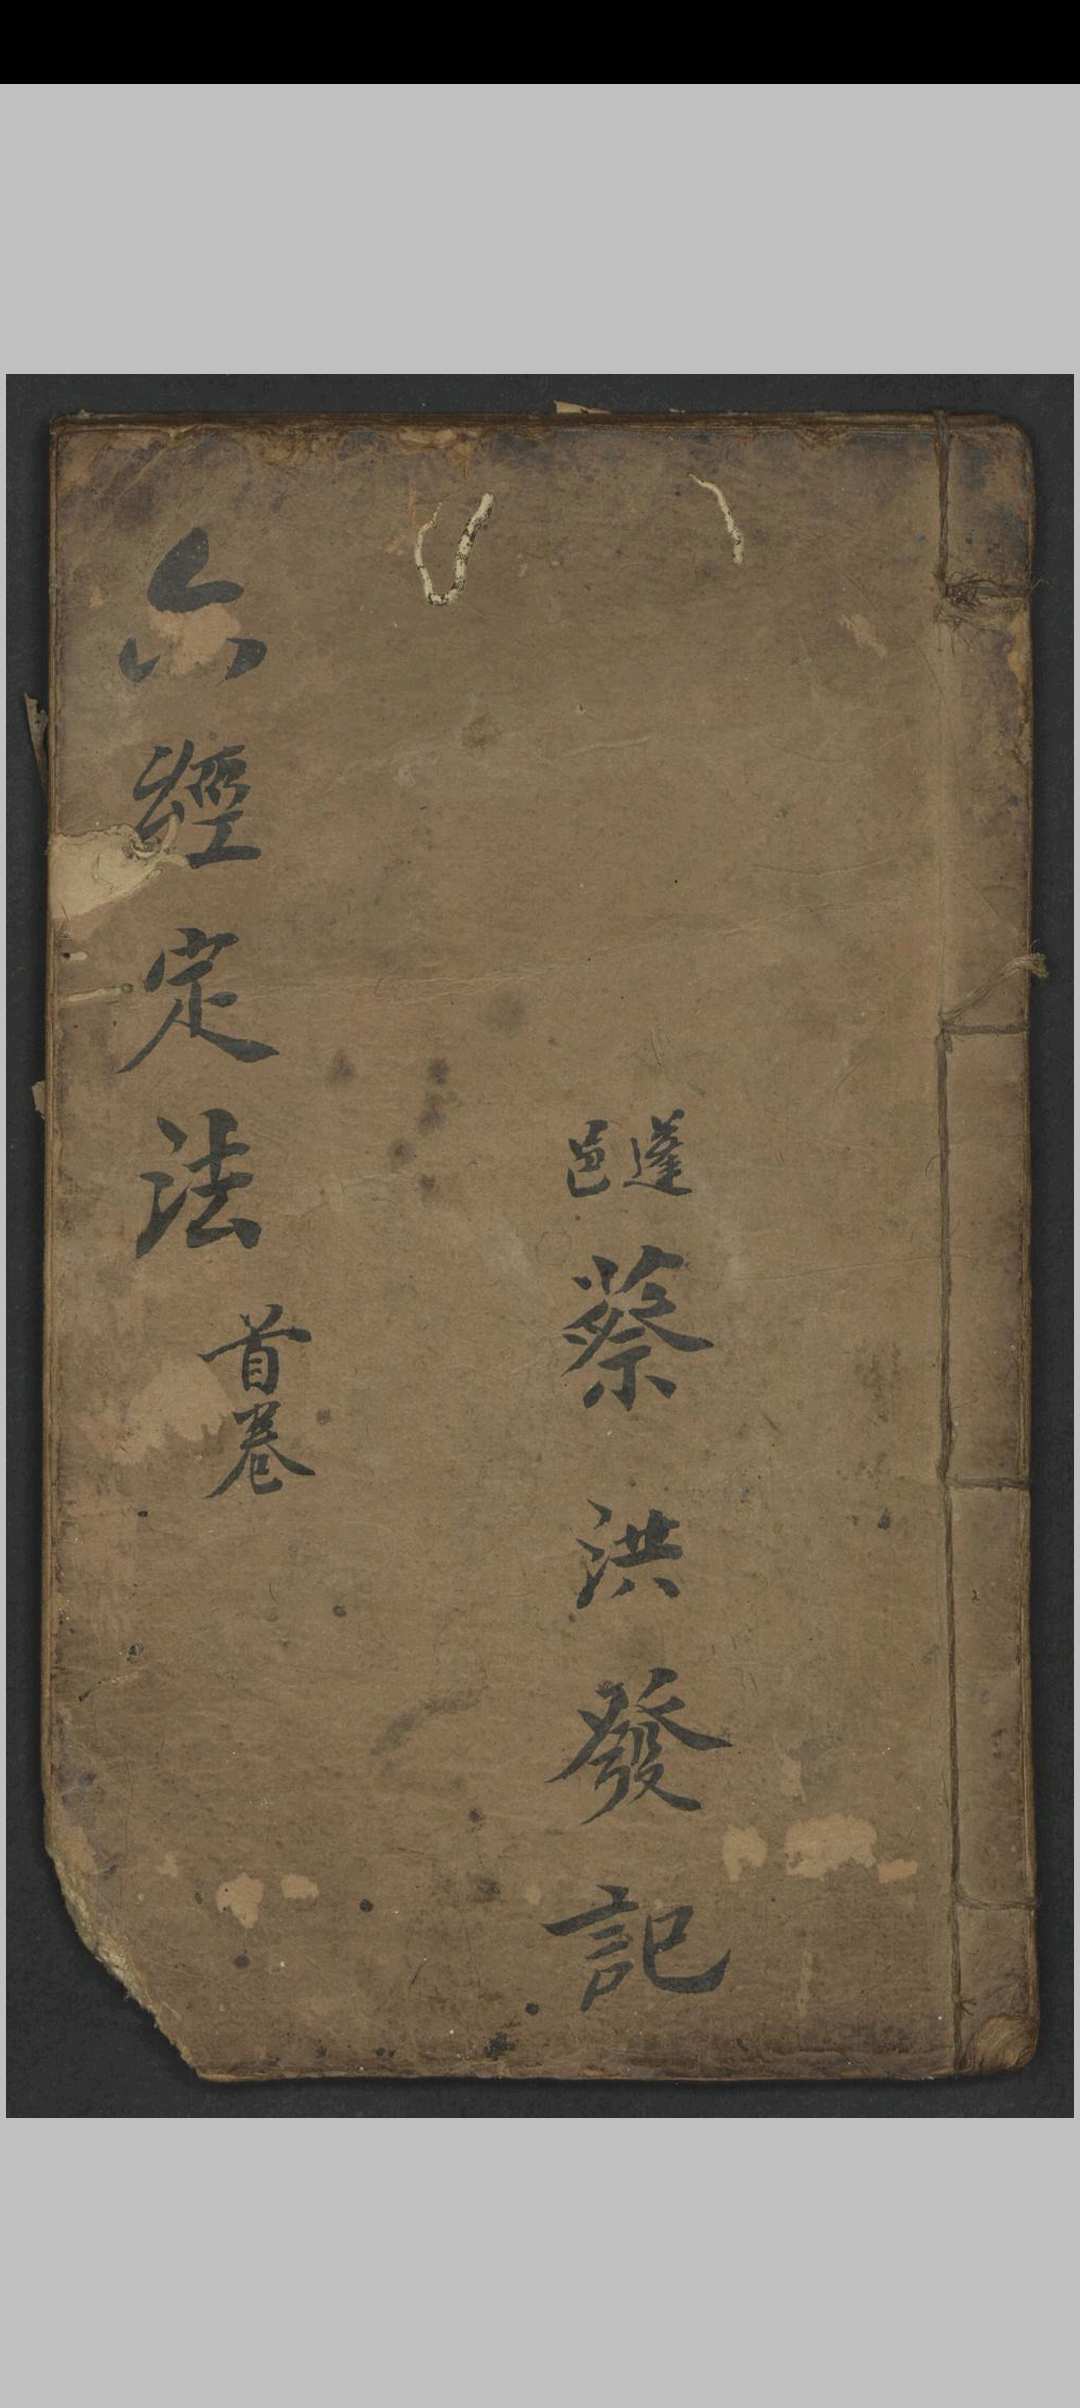 蓬邑
蔡洪發記
六經定法
首卷